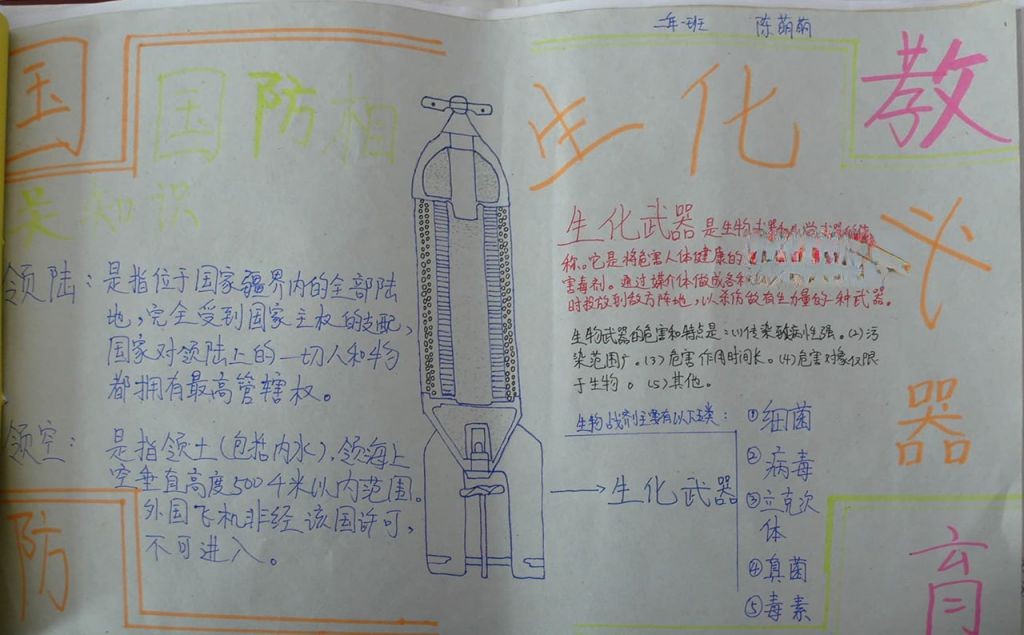 二年一班 陈萌萌
国 防 教 育
国防相
关知识
领陆：是指位于国家疆界内的全部陆
地，完全受到国家主权的支配，
国家对领陆上的一切人和物
都拥有最高管辖权。
领空：是指领土（包括内水）、领海上
空垂直高度500千米以内范围。
外国飞机非经该国许可，
不可进入。
生化武器
生化武器是生物武器和化学武器的统
称。它是将危害人体健康的
害毒剂。通过媒介体做成各种
时投放到敌方阵地，以杀伤敌有生力量的一种武器。
生物武器的危害和特点是：(1)传染致病性强。(2)污
染范围广。(3)危害作用时间长。(4)危害对象仅限
于生物。(5)其他。
生物战剂主要有以下五类：
生化武器
①细菌
②病毒
③立克次
体
④真菌
⑤毒素